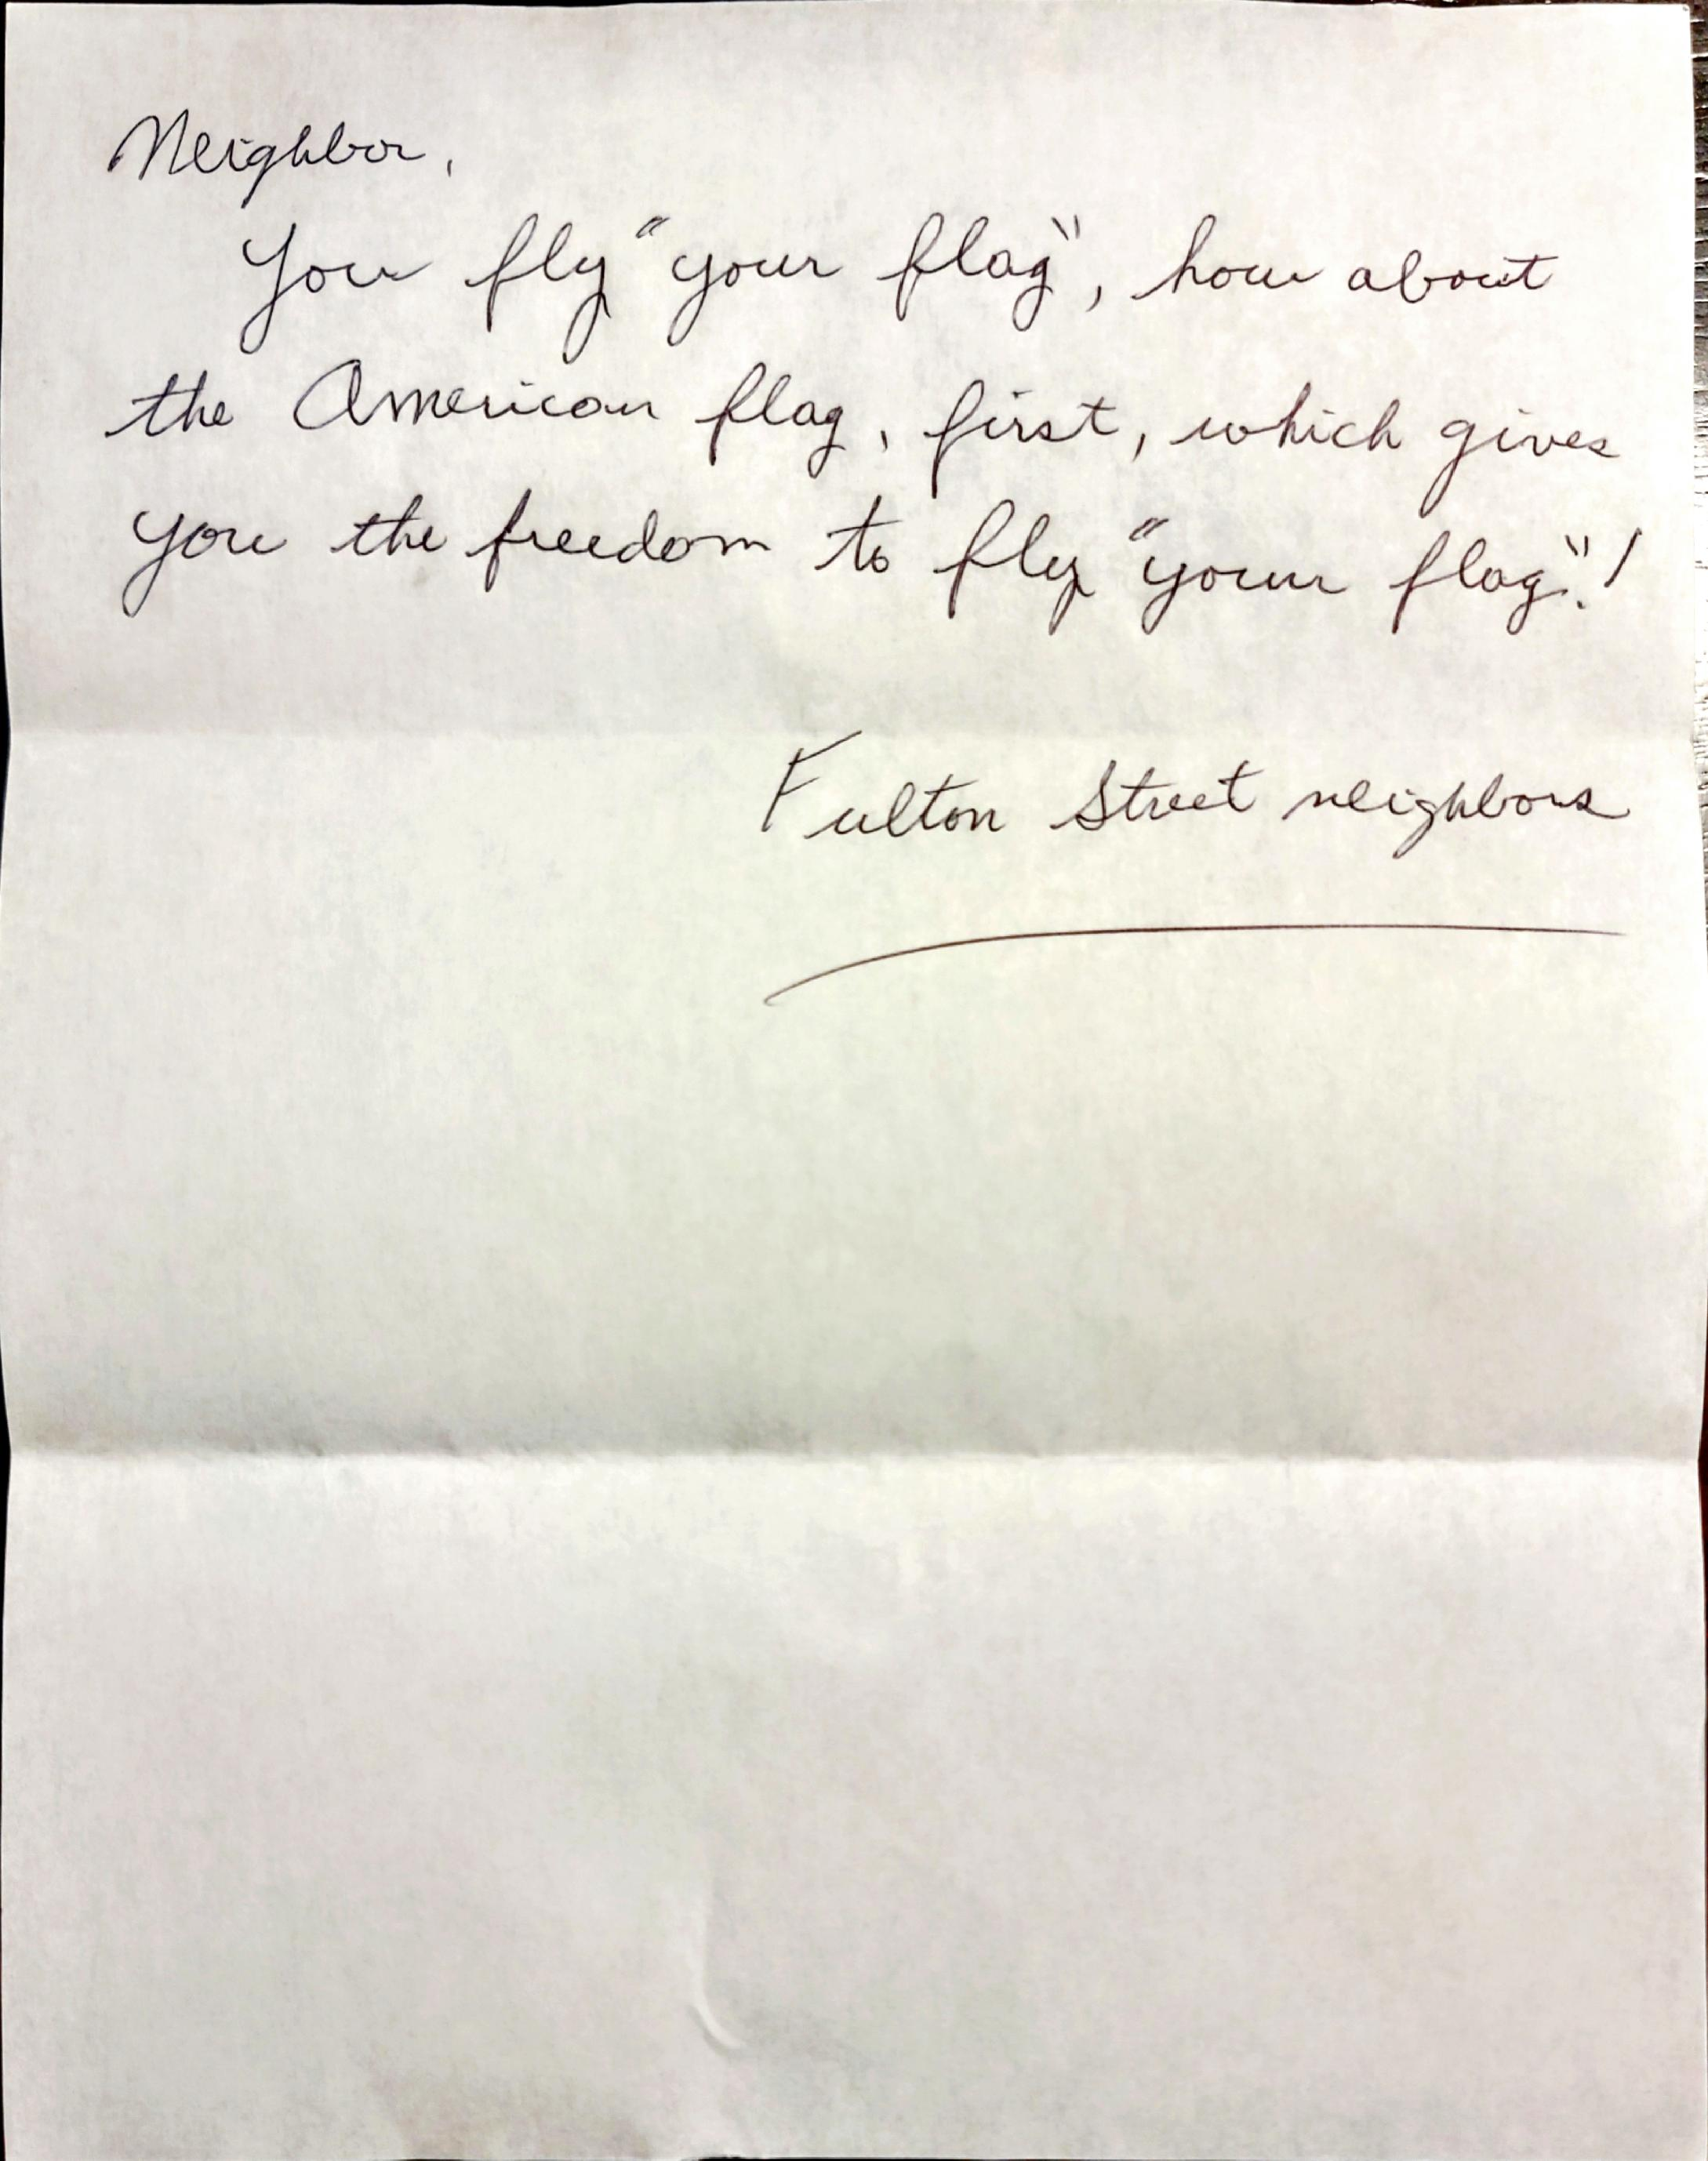 Neighbor,
You fly "your flag", how about
the American flag, first, which gives
you the freedom to fly "your flag".!
Fulton Street neighbors